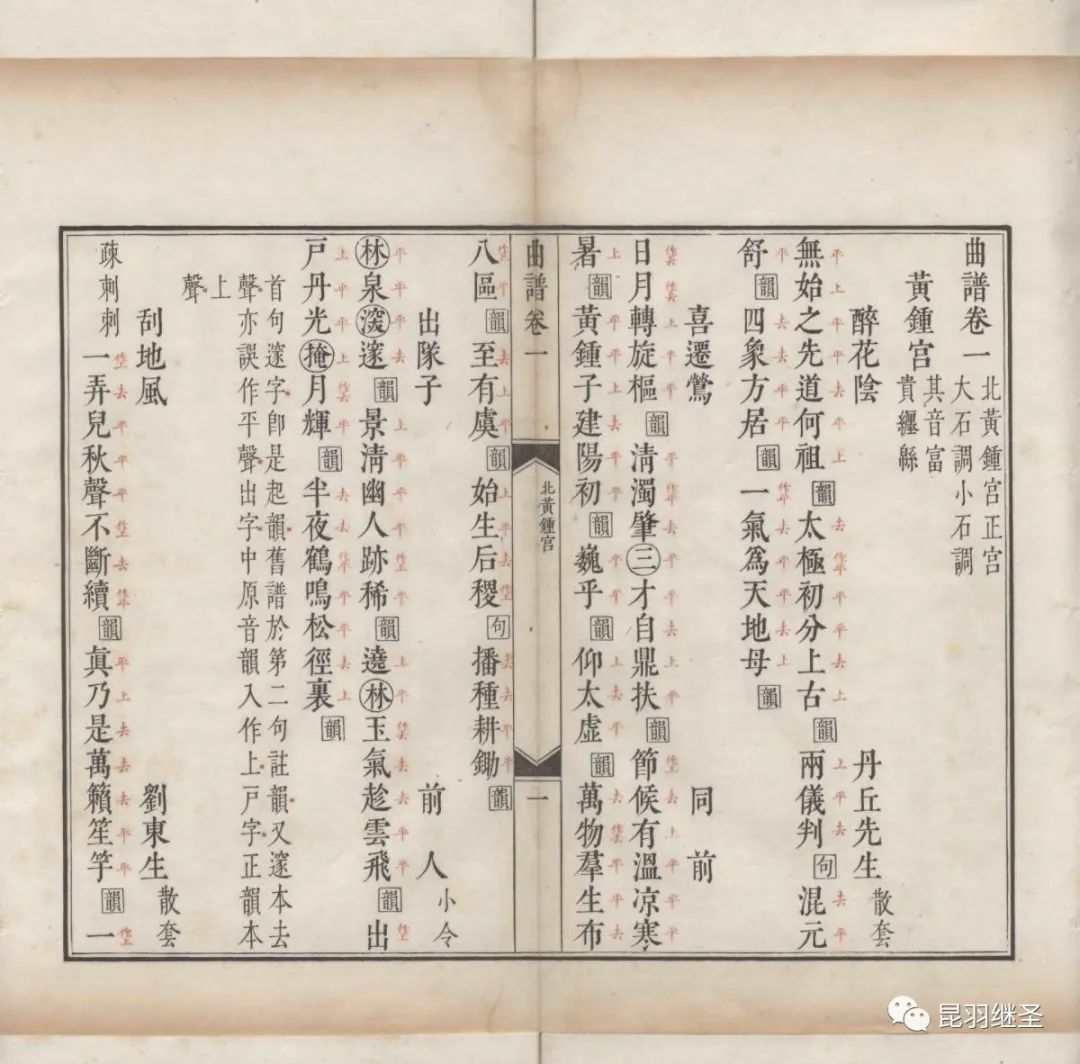 曲譜卷一 北黃鍾宮正宮
大石調小石調
黃鍾宮 其音富
貴纏緜
醉花陰 丹丘先生 散套
無始之先道何祖韻太極初分上古韻兩儀判句混元
舒韻四象方居韻一氣爲天地母韻
喜遷鶯 同前
日月轉旋樞韻清濁肇三才自鼎扶韻節候有溫凉寒
暑韻黃鍾子建陽初韻巍乎韻仰太虛韻萬物羣生布
曲譜卷一 北黃鍾宮 一
八區韻至有虞韻始生后稷句播種耕鋤韻
出隊子 前人 小令
林泉深邃韻景清幽人跡稀韻遶林玉氣趁雲飛韻出
戶丹光掩月輝韻半夜鶴鳴松徑裏韻
首句邃字卽是起韻舊譜於第二句註韻又邃本去
聲亦誤作平聲出字中原音韻入作上戶字正韻本
上
聲
刮地風 劉東生 散套
疎刺刺一弄兒秋聲不斷續韻眞乃是萬籟笙竽韻一
昆羽继圣